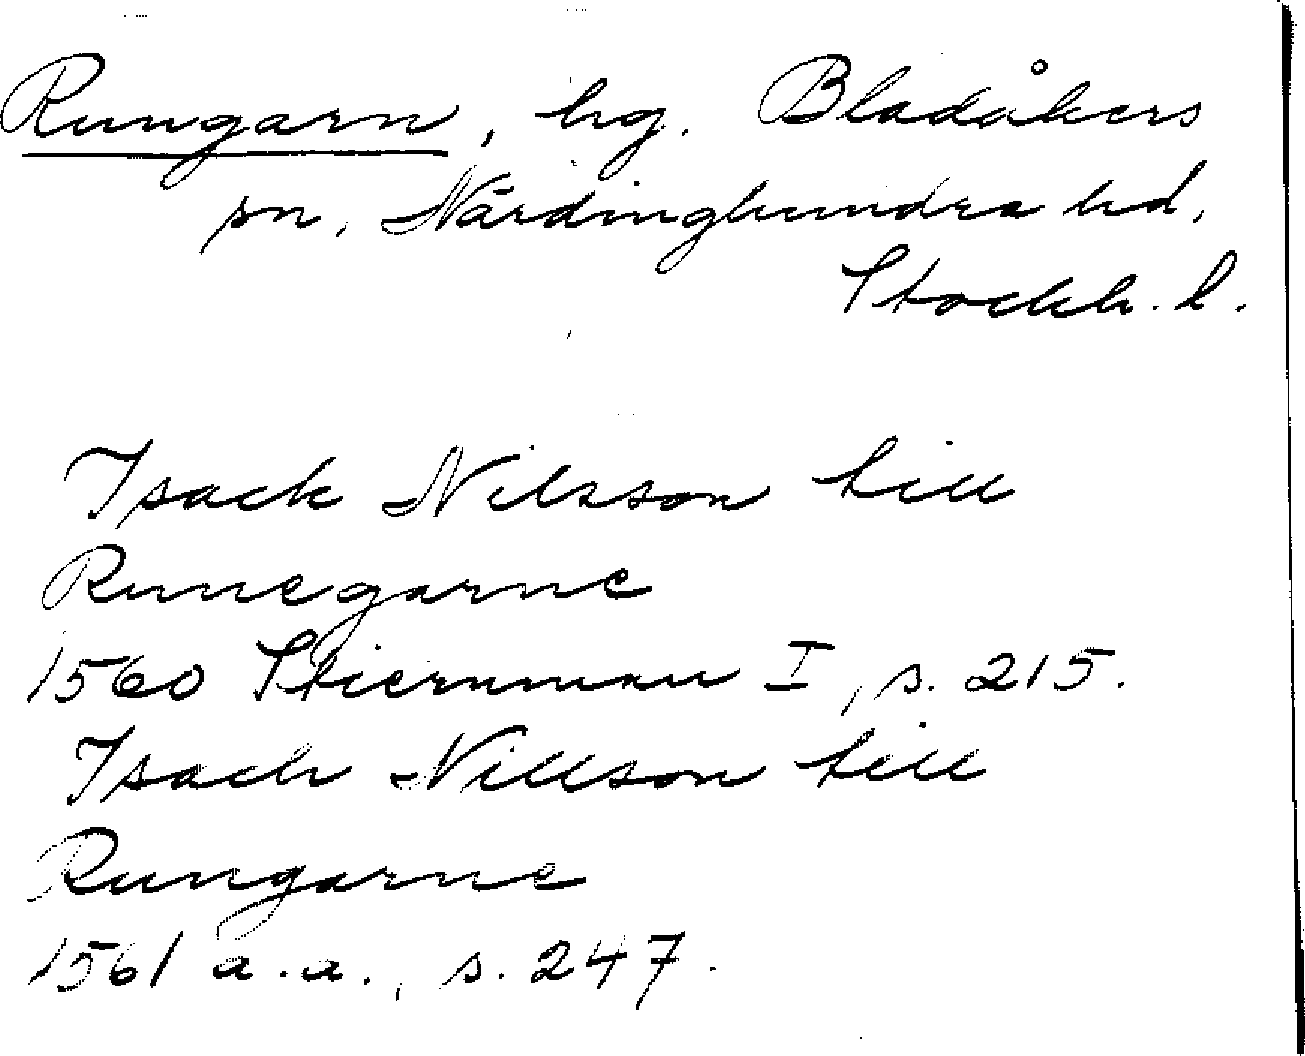 Rungarn, hg. Bladåkers
sn, Närdinghundra hd,
Stockh. l.
Isack Nilsson till
Runegarne
1560 Stiernman I, s. 215.
Isach Nillson till
Rungarne
1561 a.a., s. 247.